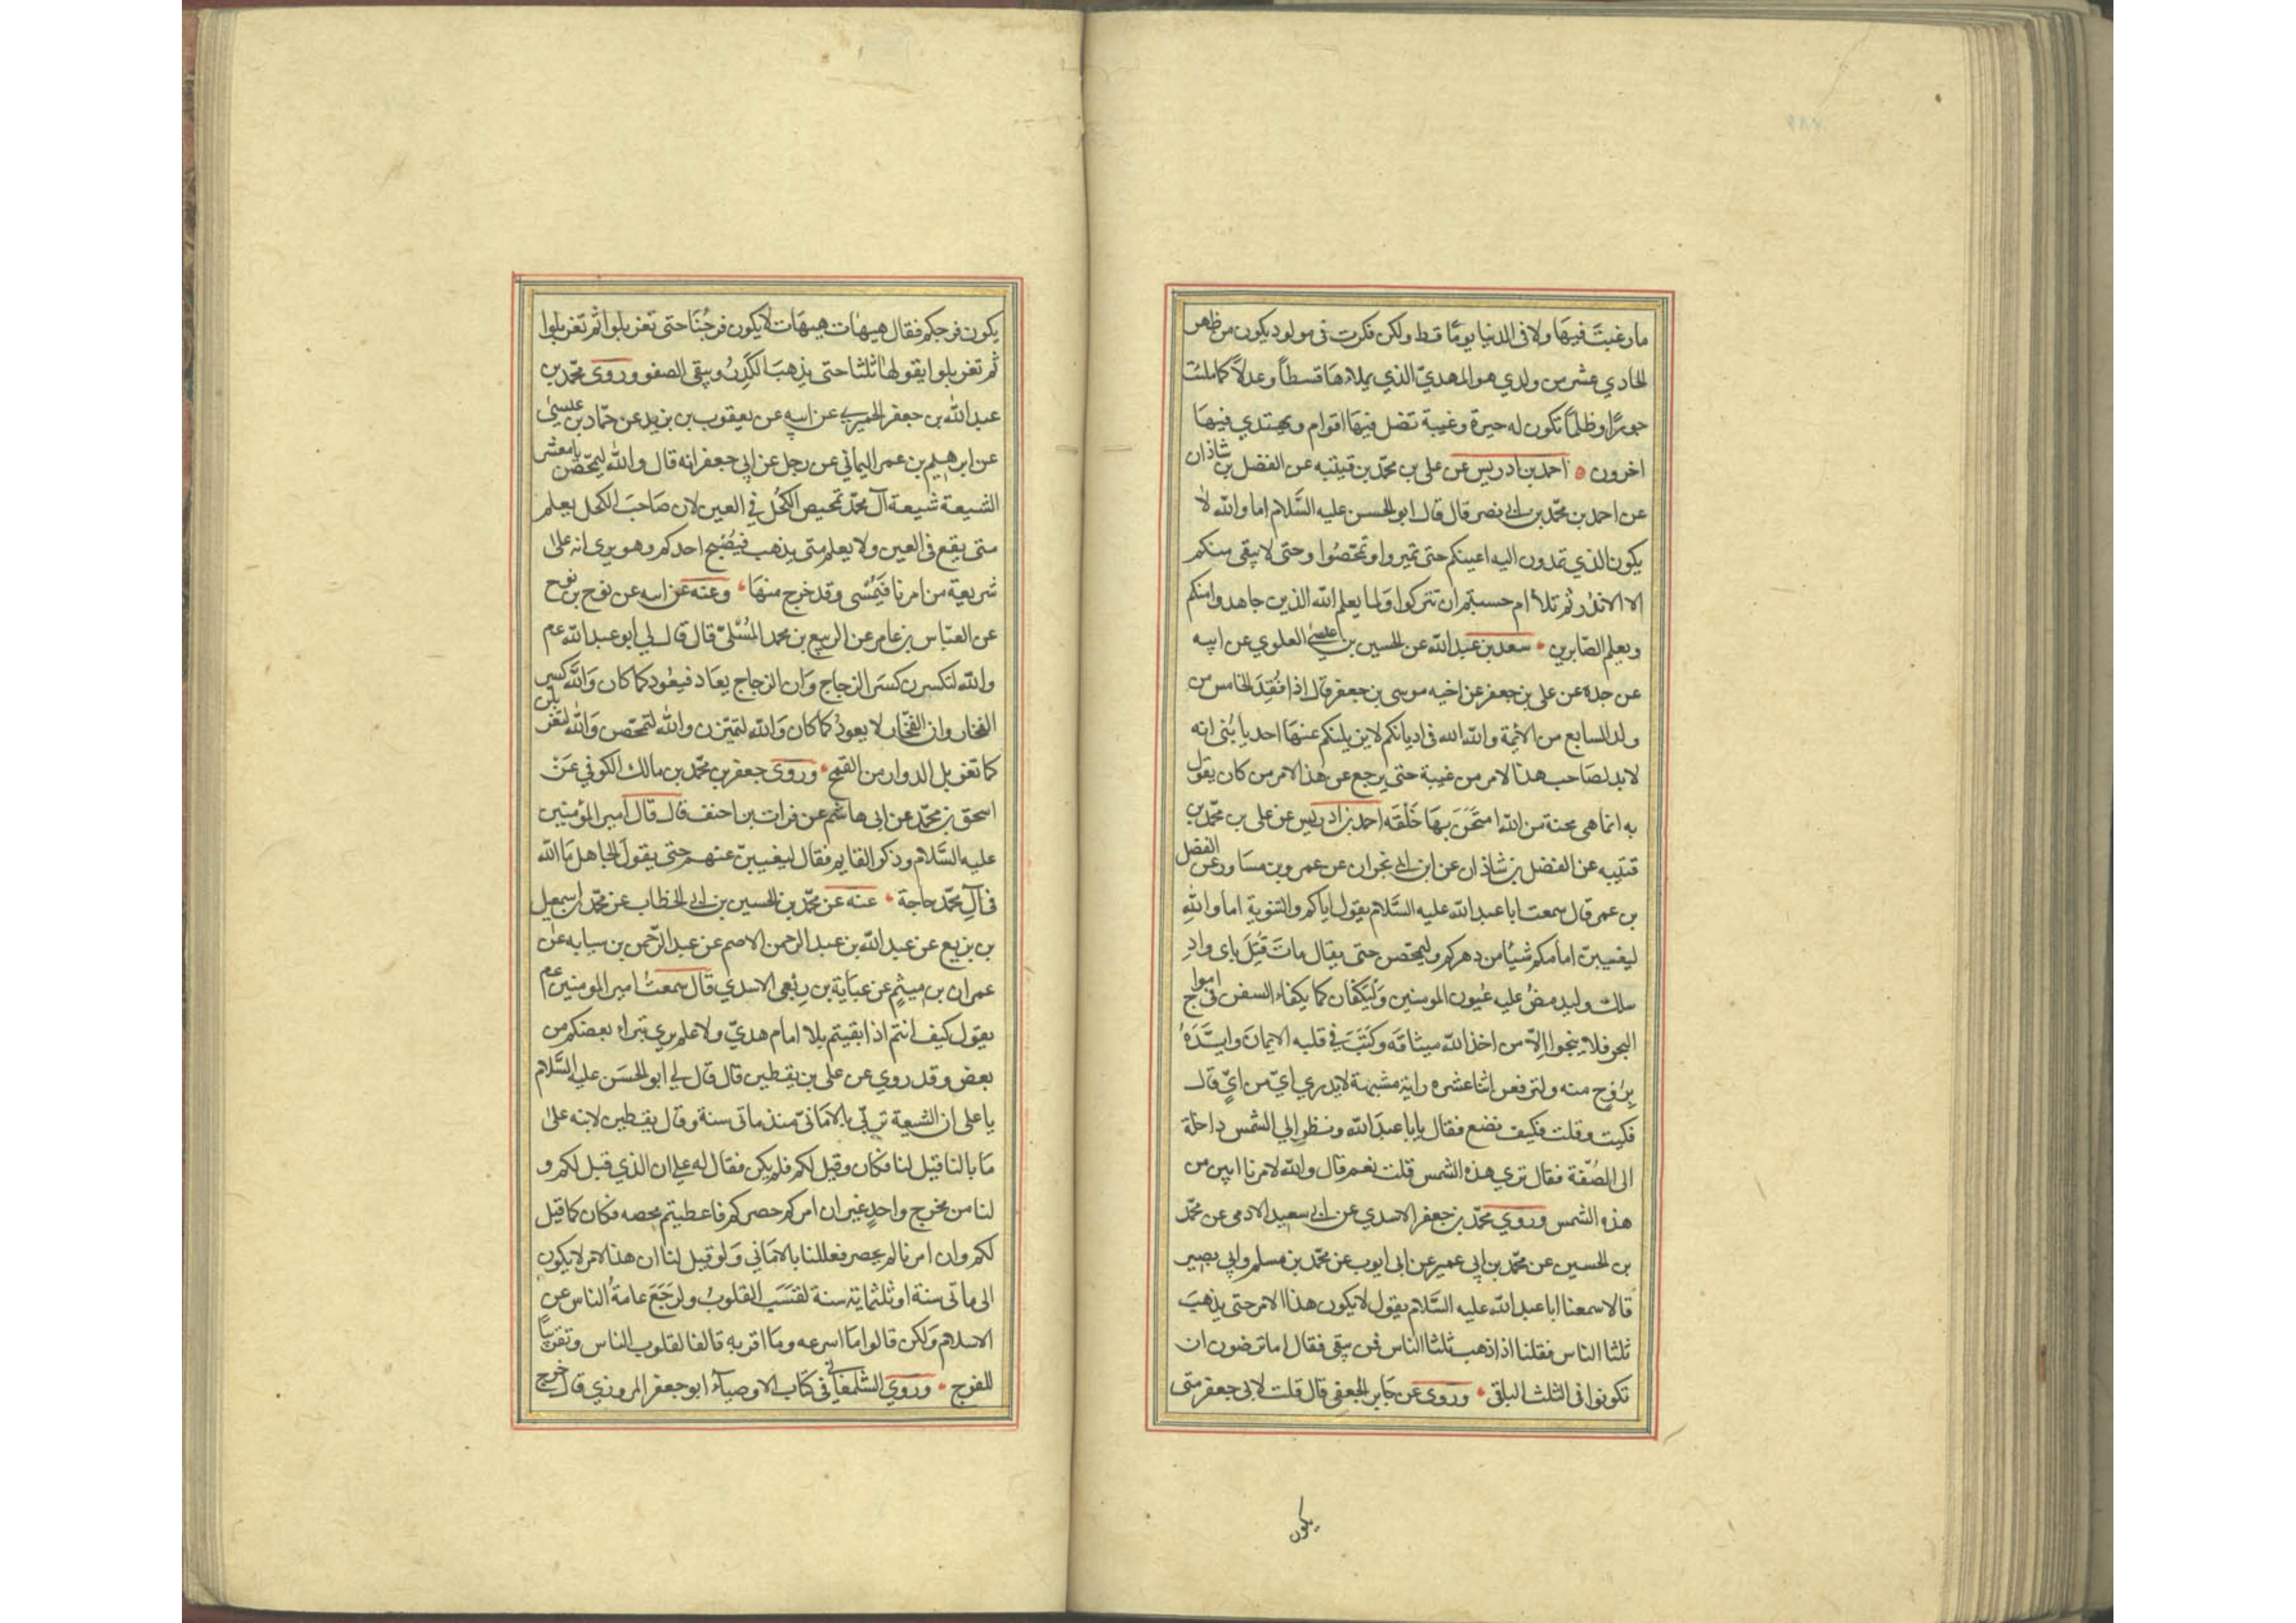 ما رغبت فيها ولا فى الدنيا يوما قط ولكن فكرت فى مولود يكون من ظهر
الحادي عشر من ولدي هو المهدي الذي يملاءها قسطا وعدلا كما ملئت
جورا وظلما تكون له حيرة وغيبة تضل فيها اقوام ويهتدي فيها
اخرون احمد بن ادريس عن على بن محمد بن قتيبه عن الفضل بن شاذان
عن احمد بن محمد بن ابي نصر قال قال ابو الحسن عليه السلام اما والله لا
يكون الذي تمدون اليه اعينكم حتى تميروا وتمحصوا وحتى لا يبقى منكم
الا الاندر ثم تلا ام حسبتم ان تتركوا ولما يعلم الله الذين جاهدوا منكم
ويعلم الصابرين سعد بن عبد الله عن الحسين بن عيسى العلوي عن ابيه
عن جده عن على بن جعفر عن اخيه موسى بن جعفر قال اذا فقد الخامس من
ولد السابع من الائمة والله الله فى اديانكم لا يزيلنكم عنها احد يا بنى انه
لا بد لصاحب هذا الامر من غيبة حتى يرجع عن هذا الامر من كان يقول
به انما هى محنة من الله امتحن بها خلقه احمد بن ادريس عن على بن محمد بن
قتيبه عن الفضل بن شاذان عن ابن ابي نجران عن عمرو بن مساور عن الفضل
بن عمر قال سمعت ابا عبد الله عليه السلام يقول اياكم والتنوية اما والله
ليغيبن امامكم شيئا من دهركم وليمحصن حتى يقال مات قتل باى واد
سلك وليدمعن عليه عيون المومنين وليكفان كما يكفاء السفن فى امواج
البحر فلا ينجوا الا من اخذ الله ميثاقه وكتب في قلبه الايمان وايده
بروح منه ولترفعن اثنا عشره راية مشبهة لا يدري اي من اي قال
فبكيت وقلت فكيف نصنع فقال يا با عبد الله ونظر الي الشمس داخلة
الى الصفة فقال تري هذه الشمس قلت نعم قال والله لامرنا ابين من
هذه الشمس وروي محمد بن جعفر الاسدي عن ابي سعيد الادمى عن محمد
بن الحسين عن محمد بن ابي عمير عن ابى ايوب عن محمد بن مسلم وابي بصير
قالا سمعنا ابا عبد الله عليه السلام يقول لا يكون هذا الامر حتى يذهب
ثلثا الناس فقلنا اذا ذهب ثلثا الناس فمن يبقى فقال اما ترضون ان
تكونوا فى الثلث الباقى وروى عن جابر الجعفى قال قلت لابى جعفر متى
يكون
يكون فرجكم فقال هيهات هيهات لا يكون فرجنا حتى تغربلوا ثم تغربلوا
ثم تغربلوا يقولها ثلثا حتى يذهب الكدر ويبقى الصفو وروى محمد بن
عبد الله بن جعفر الحميري عن ابيه عن يعقوب بن يزيد عن حماد بن عيسى
عن ابرهيم بن عمر اليماني عن رجل عن ابي جعفر انه قال والله لتمحصن يا معشر
الشيعة شيعة آل محمد تمحيص الكحل في العين لان صاحب الكحل يعلم
متى يقع فى العين ولا يعلم متى يذهب فيصبح احدكم وهو يرى انه على
شريعة من امرنا فيمسى وقد خرج منها وعنه عن ابيه عن نوح بن نوح
عن العباس بن عامر عن الربيع بن محمد المسلى قال قال لي ابو عبد الله عم
والله لتكسرن كسر الزجاج وان الزجاج يعاد فيعود كما كان والله كسر
الفخار وان الفخار لا يعود كما كان والله لتميزن والله لتمحصن والله لتغربلن
كما تغربل الدوار من القمح وروى جعفر بن محمد بن مالك الكوفي عن
اسحق بن محمد عن ابى هاشم عن فرات بن احنف قال قال امير المؤمنين
عليه السلام وذكر القايم فقال ليغيبن عنهم حتى يقول الجاهل ما لله
فى آل محمد حاجة عنه عن محمد بن الحسين بن ابي الخطاب عن محمد بن اسمعيل
بن بزيع عن عبد الله بن عبد الرحمن الاصم عن عبد الرحمن بن سيابه عن
عمران بن ميثم عن عباية بن ربعى الاسدي قال سمعت امير المومنين عم
يقول كيف انتم اذا بقيتم بلا امام هدي ولا علم يرى تبراء بعضكم من
بعض وقد روي عن على بن يقطين قال قال لي ابو الحسن عليه السلام
يا على ان الشيعة تربى بالامانى منذ ماتى سنة وقال يقطين لابنه على
ما بالنا قيل لنا فكان وقيل لكم فلم يكن فقال له على ان الذي قيل لكم و
لنا من مخرج واحد غير ان امركم حصركم فاعطيتم محصه فكان كما قيل
لكم وان امرنا لم يحصر فعللنا بالاماني ولو قيل لنا ان هذا الامر لا يكون
الى ماتى سنة او ثلثماية سنة لقست القلوب ولرجع عامة الناس عن
الاسلام ولكن قالوا ما اسرعه وما اقربه تالفا لقلوب الناس وتقريبا
للفرج وروي الشلمغاني فى كتاب الاوصياء ابو جعفر المروزي قال خرج